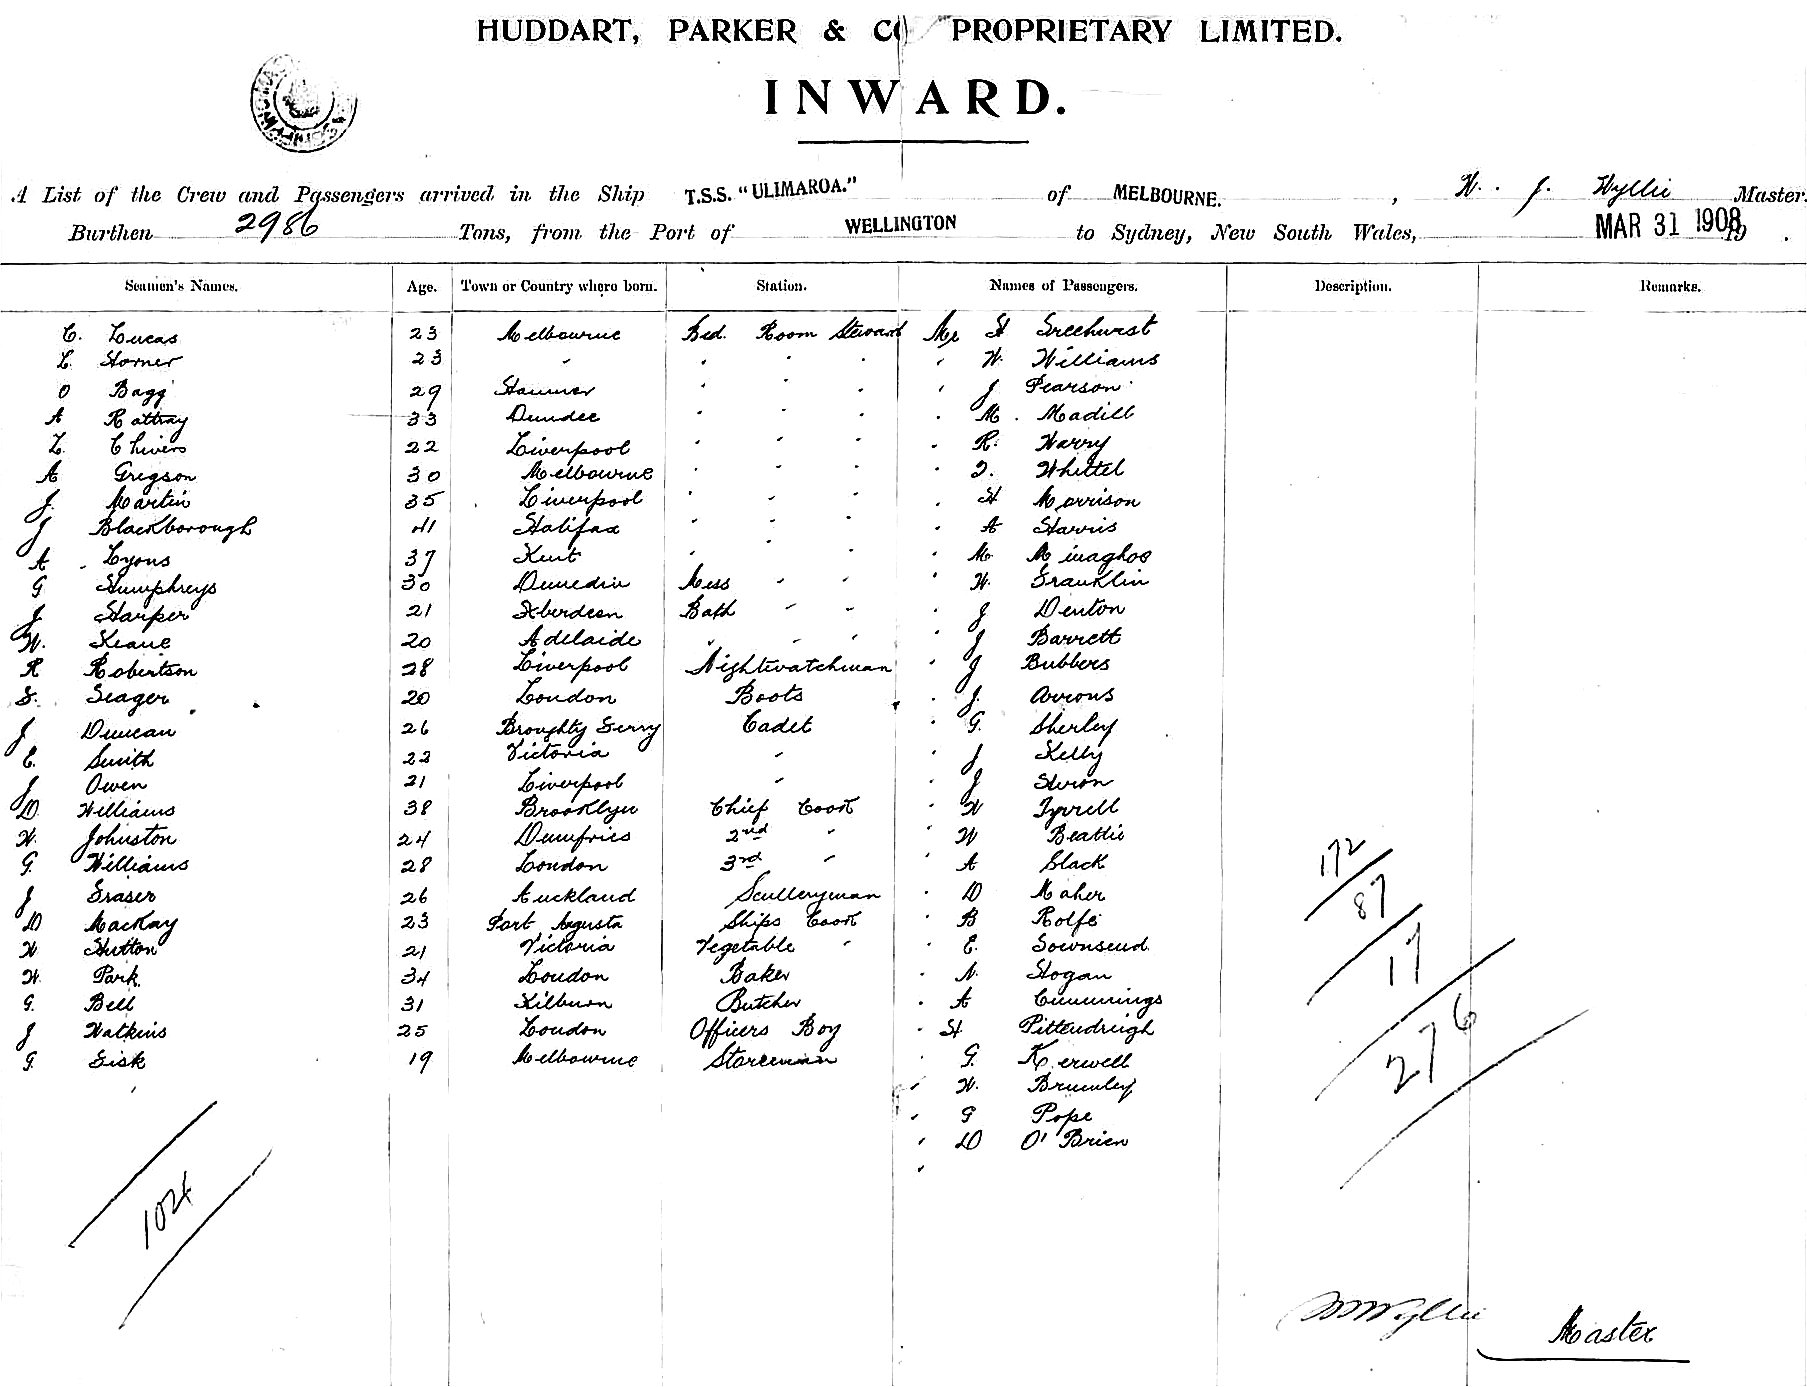 HUDDART, PARKER & CO PROPRIETARY LIMITED.
INWARD.
A List of the Crew and Passengers arrived in the Ship T.S.S. "ULIMAROA." of MELBOURNE. , W. J. Wyllie Master.
Burthen 2986 Tons, from the Port of WELLINGTON to Sydney, New South Wales, MAR 31 1908
Seamen's Names. Age. Town or Country where born. Station. Names of Passengers. Description. Remarks.
C. Lucas 23 Melbourne Bed Room Steward Mr H Greehurst
L. Horner 23 " " " " " W. Williams
O Bagg 29 " " " " J Pearson
A Rattray 33 Dundee " " " " M. Madill
L. Chivers 22 Liverpool " " " " R. Harry
A Gregson 30 Melbourne " " " " Whittel
J. Martin 35 Liverpool " " " " H Morrison
J Blackborough 41 Halifax " " " " A Harris
A Lyons 37 Kent " " " " M
G Humphreys 30 Dunedin Mess " " " W. Franklin
J Harper 21 Aberdeen Bath " " " J Denton
W. Keane 20 Adelaide " " " " J Barrett
R Robertson 28 Liverpool Nightwatchman " J Bubbers
S. Seager 20 London Boots " J.
J Duncan 26 Broughty Ferry Cadet " G. Sherley
E. Smith 22 Victoria " " J Kelly
J Owen 21 Liverpool " " J
D. Williams 38 Brooklyn Chief Cook " W Tyrrell
W. Johnston 24 Dumfries 2nd " " W Beattie
G. Williams 28 London 3rd " " A Slack
J Fraser 26 Auckland Sculleryman " D Maher
D Mackay 23 Port Augusta Ships Cook " B Rolfe
W Hutton 21 Victoria Vegetable " " E. Townsend
W Park 34 London Baker " N. Hogan
G. Bell 31 Kilburn Butcher " A Cummings
J Watkins 25 London Officers Boy " H Pittendreigh
G. Fisk 19 Melbourne Storeman G. Kerwell
" W. Brumley
" G Pope
" D O'Brien
172
87
17
276
104
W J Wyllie
Master